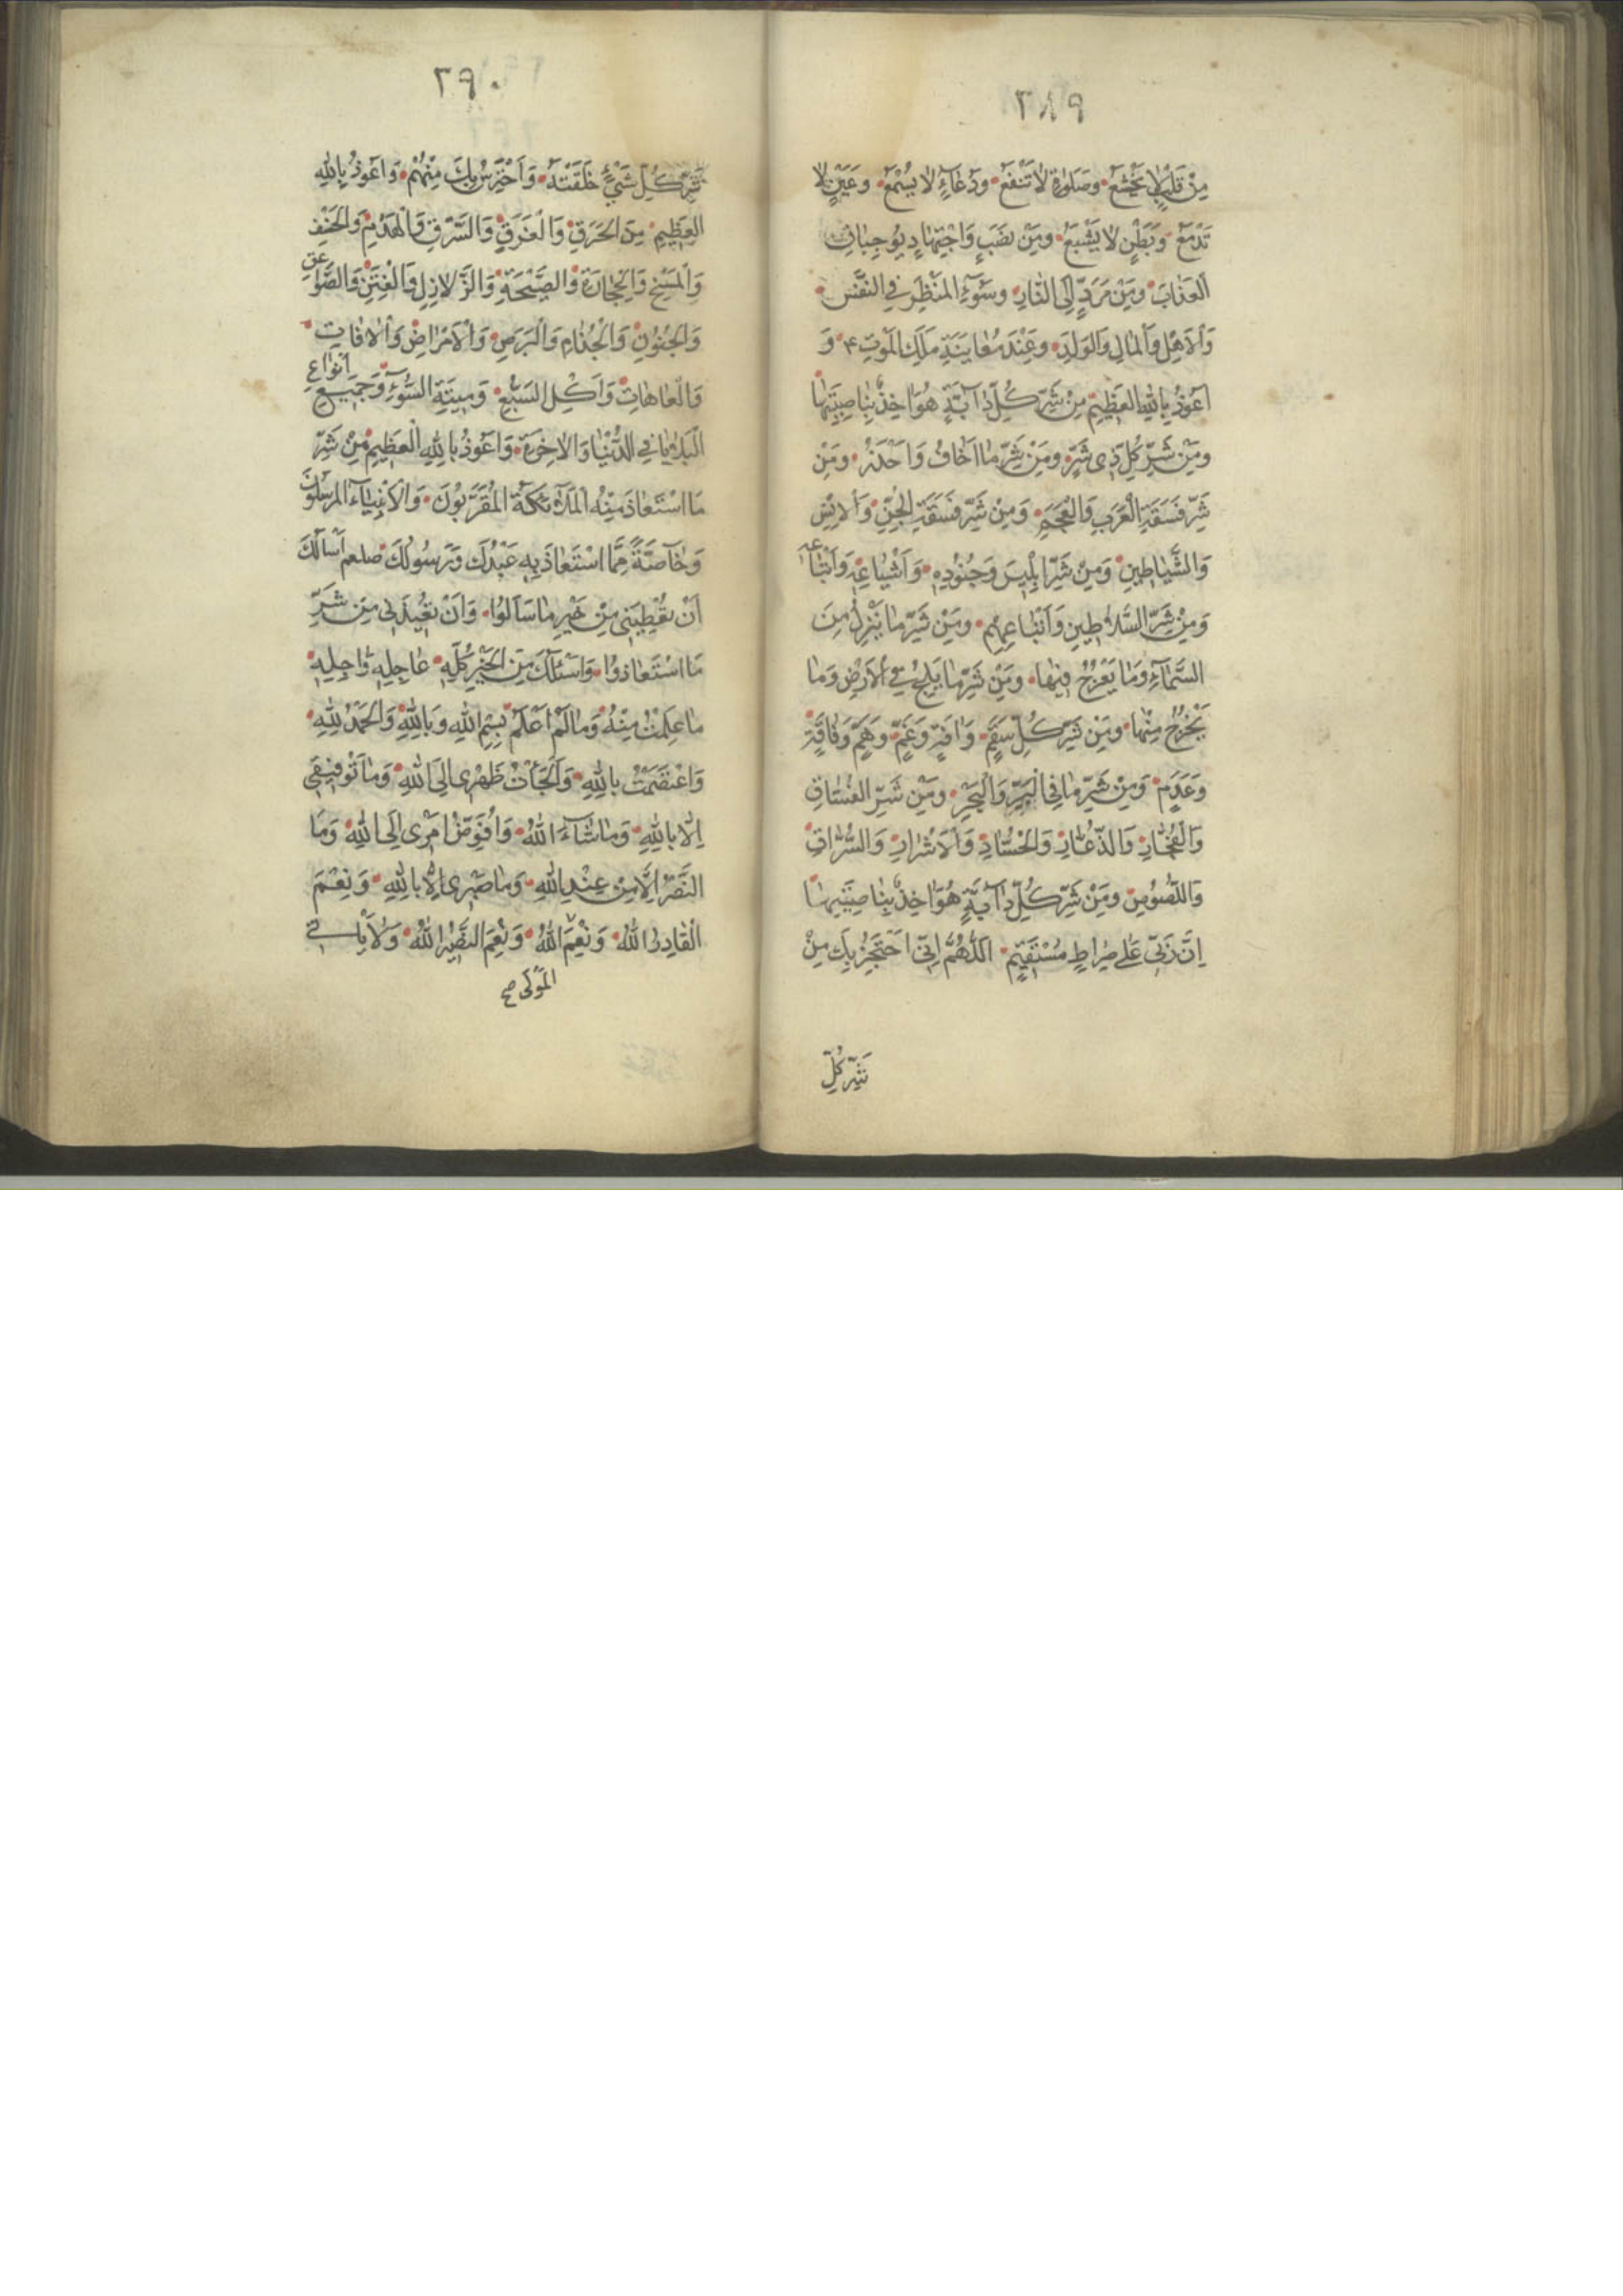 ٢٨٩
مِنْ قَلْبٍ لا يَخْشَعُ وصَلوٰةٍ لاٰ تَنْفَعُ ودُعَآءٍ لا يُسْمَعُ وعَيْنٍ لا
تَدْمَعُ وَبَطْنٍ لا يَشْبَعُ ومِنْ نَصَبٍ وَاجْتِهادٍ يُوجِبانِ
العَذابَ ومِنْ مَرَدٍّ اِلَى النّارِ وسُوٓءِ المَنْظَرِ في النَّفْسِ
وَالْاَهْلِ والمالِ والوَلَدِ وعِنْدَ مُعايَنَةِ مَلَكِ المَوْتِ ۴ وَ
اَعُوذُ بِاللهِ العَظِيمِ مِنْ شَرِّ كُلِّ دآبَّةٍ هُوَ اٰخِذٌ بِناصِيَتِها
ومِنْ شَرِّ كُلِّ ذِى شَرٍّ ومِنْ شَرِّ ما اَخافُ وَاَحْذَرُ ومِنْ
شَرِّ فَسَقَةِ الْعَرَبِ وَالْعَجَمِ وَمِنْ شَرِّ فَسَقَةِ الْجِنِّ وَالْاِنْسِ
وَالشَّيٰاطِينِ وَمِنْ شَرِّ اِبْلِيسَ وَجُنُوْدِهِ وَاَشْيٰاعِهِ وَاَتْبٰاعِهِ
وَمِنْ شَرِّ السَّلاٰطِينِ وَاَتْبٰاعِهِمْ ومِنْ شَرِّ مٰا يَنْزِلُ مِنَ
السَّمٰآءِ وَمٰا يَعْرُجُ فِيْهٰا ومِنْ شَرِّ مٰا يَلِجُ فِي الْاَرْضِ وَمٰا
يَخْرُجُ مِنْهٰا ومِنْ شَرِّ كُلِّ سَقَمٍ وَاٰفَةٍ وَغَمٍّ وَهَمٍّ وَفٰاقَةٍ
وَعَدَمٍ وَمِنْ شَرِّ مٰا فِي الْبَرِّ وَالْبَحْرِ ومِنْ شَرِّ الفُسّٰاقِ
وَالْفُجّٰارِ وَالذُّعّٰارِ وَالْحُسّٰادِ وَالْاَشْرٰارِ وَالسُّرّٰاقِ
وَاللُّصُوْصِ ومِنْ شَرِّ كُلِّ دٰآبَّةٍ هُوَ اٰخِذٌ بِنٰاصِيَتِهٰا
اِنَّ رَبِّي عَلٰى صِرٰاطٍ مُسْتَقِيْمٍ اَللّٰهُمَّ اِنِّي اَحْتَجِزُ بِكَ مِنْ
شَرِّ كُلِّ
٢٩٠
شَرِّ كُلِّ شَيْءٍ خَلَقْتَهُ وَاَحْتَرِسُ بِكَ مِنْهُمْ وَاَعُوذُ بِاللهِ
العَظِيْمِ مِنَ الْحَرَقِ وَالْغَرَقِ وَالشَّرَقِ وَالْهَدْمِ وَالْخَسْفِ
وَالْمَسْخِ وَالْحِجٰارَةِ وَالصَّيْحَةِ وَالزَّلازِلِ وَالْفِتَنِ وَالصَّوٰاعِقِ
وَالْجُنُوْنِ وَالْجُذٰامِ وَالْبَرَصِ وَالْاَمْرٰاضِ وَالْاٰفٰاتِ
وَالْعٰاهٰاتِ وَاَكْلِ السَّبُعِ وَمِيْتَةِ السُّوٓءِ وَجَمِيْعِ اَنْوٰاعِ
الْبَلٰايٰا فِي الدُّنْيٰا وَالْاٰخِرَةِ وَاَعُوْذُ بِاللهِ الْعَظِيْمِ مِنْ شَرِّ
مَا اسْتَعٰاذَ مِنْهُ المَلٰٓئِكَةُ المُقَرَّبُوْنَ وَالْاَنْبِيٰآءُ المُرْسَلُوْنَ
وَخٰآصَّةً مِمَّا اسْتَعٰاذَ بِهِ عَبْدُكَ وَرَسُوْلُكَ صلعم اَسْاَلُكَ
اَنْ تُعْطِيَنِي مِنْ خَيْرِ مٰا سَاَلُوْا وَاَنْ تُعِيْذَنِي مِنْ شَرِّ
مَا اسْتَعٰاذُوْا وَاَسْئَلُكَ مِنَ الْخَيْرِ كُلِّهِ عٰاجِلِهِ وَاٰجِلِهِ
مٰا عَلِمْتُ مِنْهُ وَمٰا لَمْ اَعْلَمْ بِسْمِ اللهِ وَبِاللهِ وَالْحَمْدُ لِلّٰهِ
وَاعْتَصَمْتُ بِاللهِ وَاَلْجَأْتُ ظَهْرِى اِلَى اللهِ وَمٰا تَوْفِيْقِي
اِلّا بِاللهِ وَمٰا شٰآءَ اللهُ وَاُفَوِّضُ اَمْرِى اِلَى اللهِ وَمَا
النَّصْرُ اِلّا مِنْ عِنْدِ اللهِ وَمٰا صَبْرِى اِلّا بِاللهِ وَنِعْمَ
الْقٰادِرُ اللهُ وَنِعْمَ اللهُ وَنِعْمَ النَّصِيْرُ اللهُ وَلاٰ يَأْتِي
المَوْلٰى صح